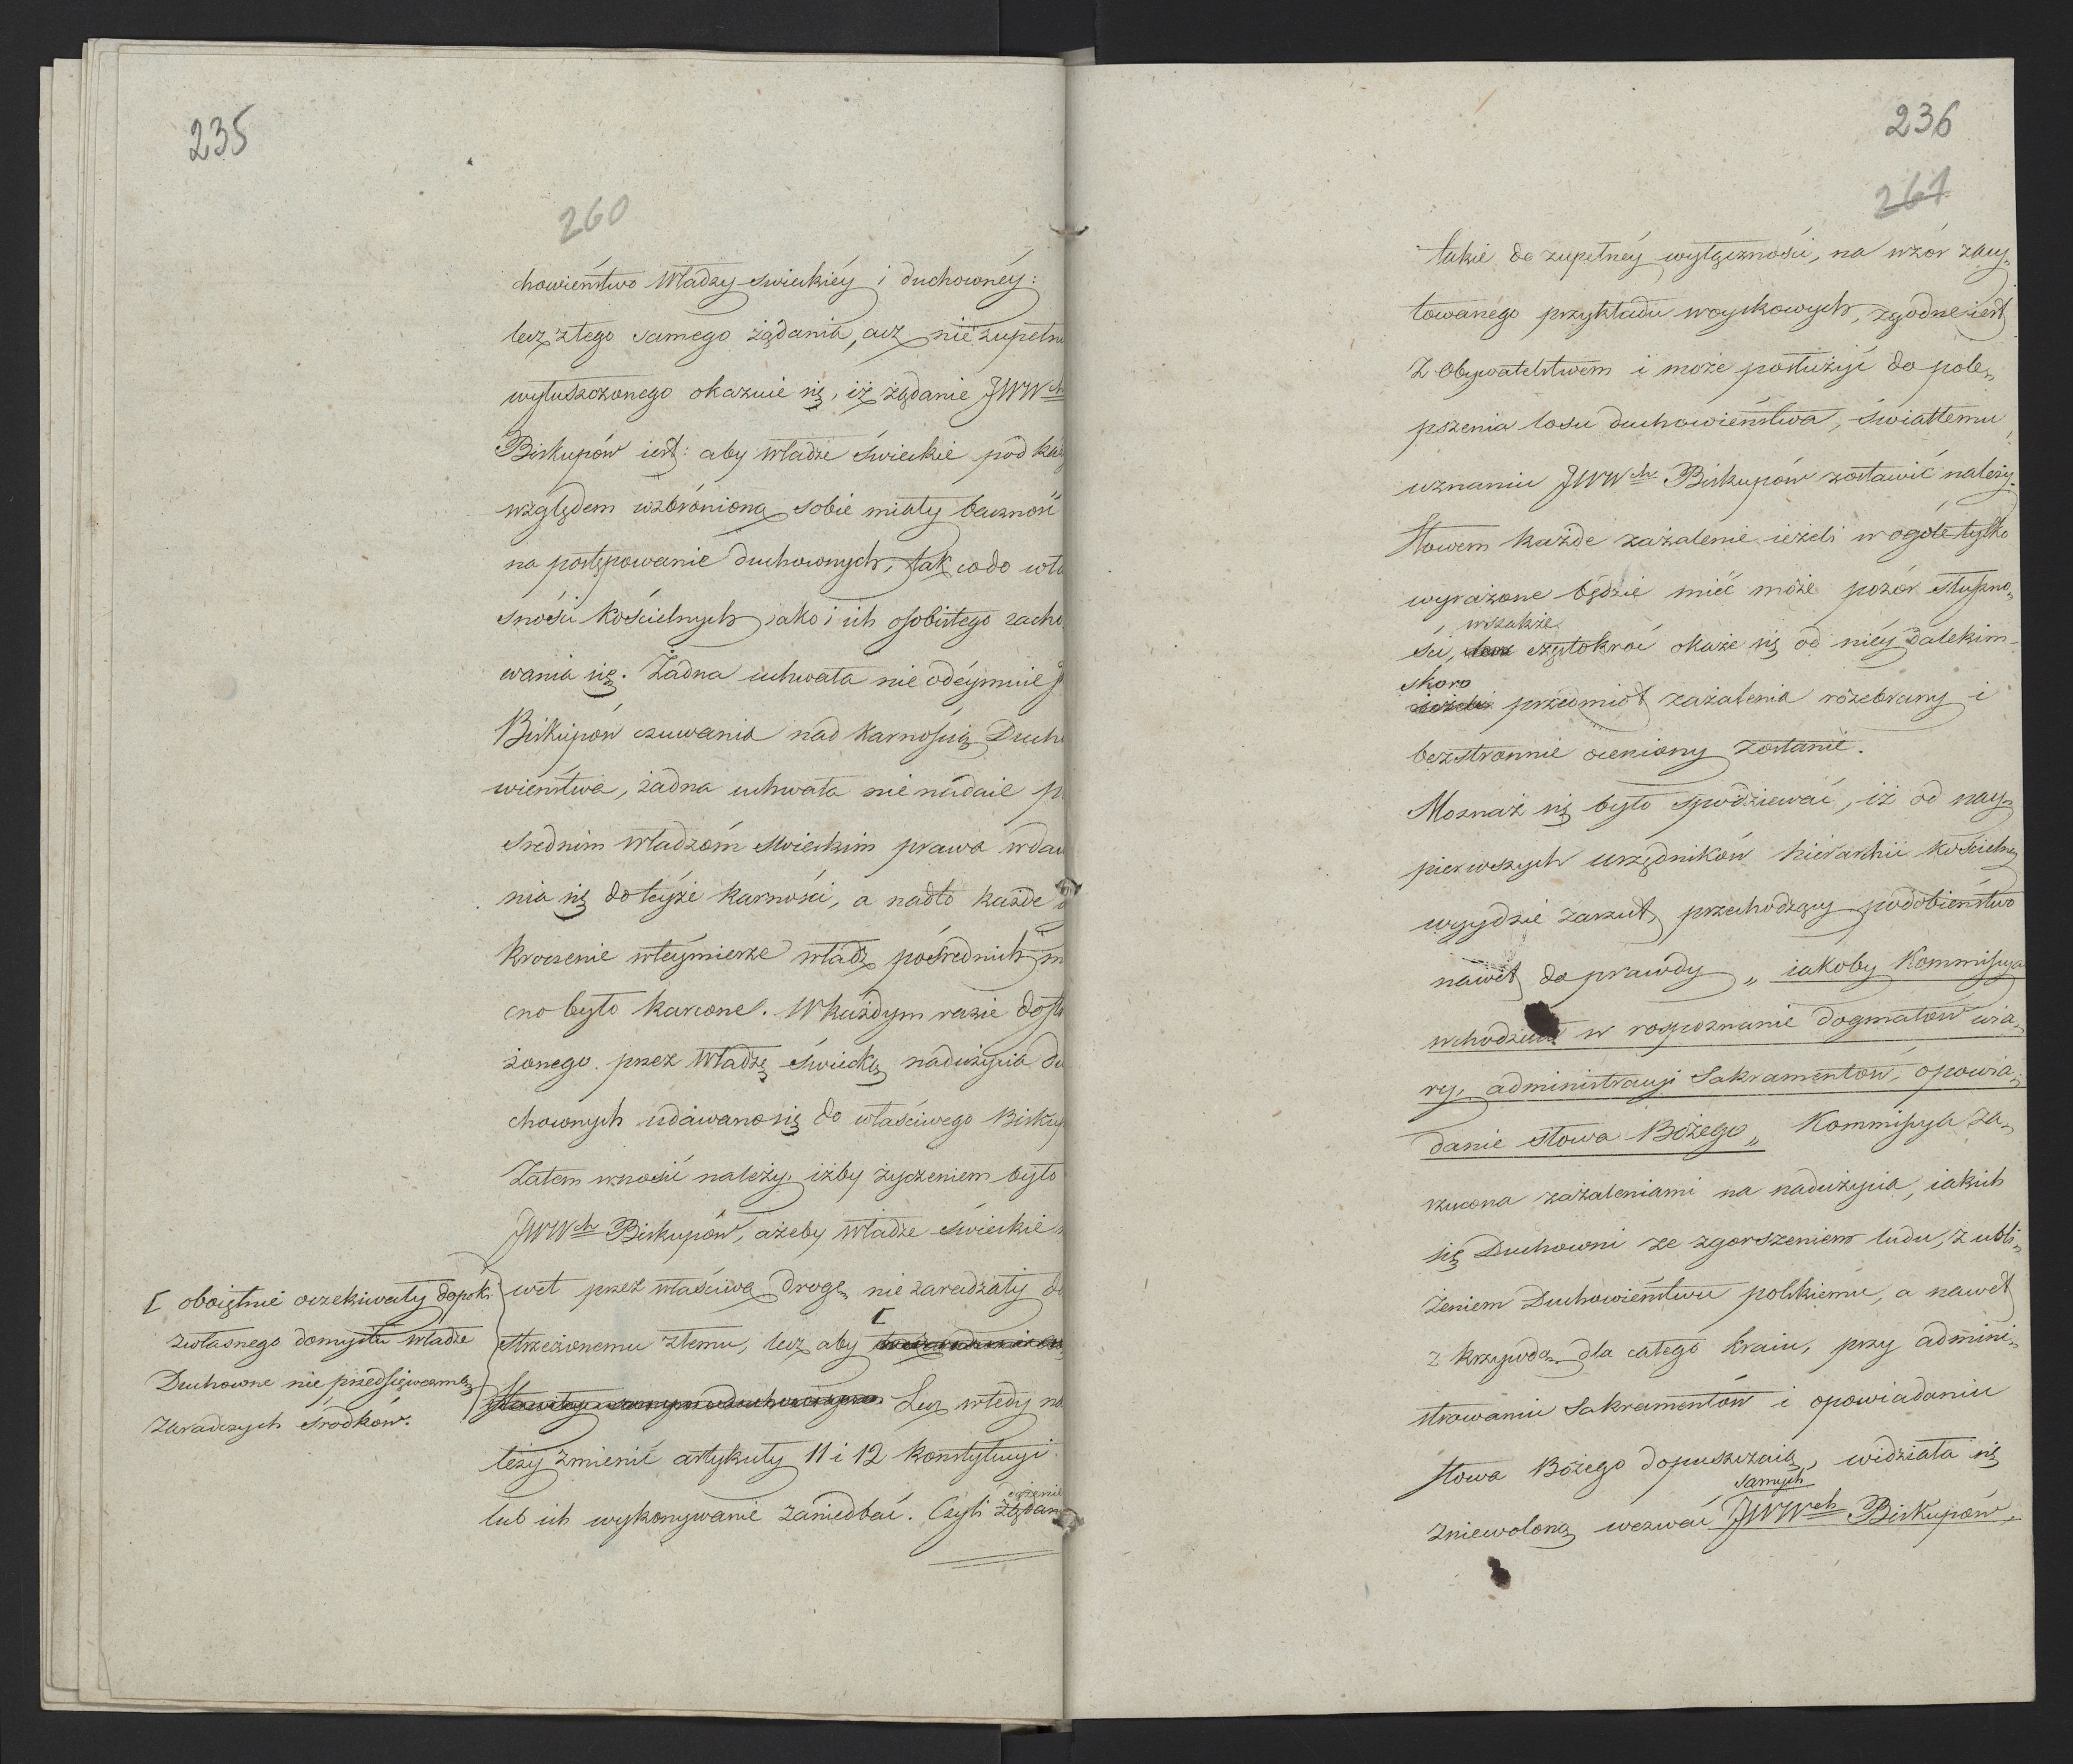 235
260
chowieństwo Władzy świeckiéy i duchownéy:
lecz ztego samego żądania, acz nie zupełnie
wyłuszczonego okazuie się, iż żądanie JWWch
Biskupów iest: aby władze świeckie pod każ
względem wzbronioną sobie miały baczność
na postępowanie duchownych, tak codo wła
sności kościelnych iako i ich osobistego zacho
wania się. Żadna uchwała nie odeymuie
Biskupów czuwania nad karnością Ducho
wieństwa, żadna uchwała nie nadaie po
średnim władzom świeckim prawa wdawa
nia się do teyże karności, a nadto każde
kroczenie wteymierze władz pośrednich m
cno było karcone. W każdym razie dostrze
żonego przez Władzę świecką nadużycia du
chownych udawano się do właściwego Biskup
Zatem wnosić należy, iżby życzeniem było
JWWch Biskupów, ażeby władze świeckie
wet przez właściwą drogę nie zaradzały do
strzeżonemu złemu, lecz aby [
Lecz wtedy na
leży zmienić artykuły 11 i 12 konstytucyi
lub ich wykonywanie zaniedbać. Czyli żądan
życzenie
[ oboiętnie oczekiwały dopóki
zwłasnego domysłu władze
Duchowne nie przedsięwezmą
zaradczych środków.
236
261
takie do zupełnéy wyłączności, na wzór zacy„
towanego przykładu woyskowych, zgodne iest
z Obywatelstwem i może posłużyć do pole„
pszenia losu duchowieństwa, światłemu
uznaniu JWWch Biskupów zostawić należy.
Słowem każde zażalenie ieżeli w ogóle tylko
wyrażone będzie mieć może pozór słuszno„
wszakże
ści, lecz czylokroć okaże się od niéy dalekim
skoro
ieżeli przedmiot zażalenia rozebrany i
bezstronnie oceniony zostanie.
Možnaż się było spodziewać, iż od nay„
pierwszych urzędników hierarchii kościelnéy
wyydzie zarzut, przechodzący podobieństwo
nawet do prawdy „ iakoby Kommissya
wchodziła w rozpoznanie dogmatów wia„
ry, administracyi Sakramentów, opowia„
danie słowa Bożego „ Kommissya za„
rzucona zażaleniami na nadużycia, iakich
się Duchowni ze zgorszeniem ludu, z ubli„
żeniem Duchowieństwu polskiemu, a nawet
z krzywdą dla całego kraiu, przy admini„
strowaniu Sakramentów i opowiadaniu
słowa Bożego dopuszczaią, widziała się
samych
zniewoloną wezwać JWWch Biskupów,